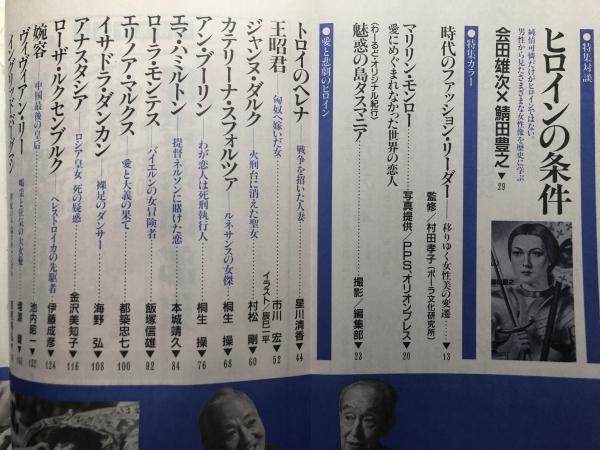 ●特集対談
ヒロインの条件
純情可憐だけがヒロインではない。
男性から見たさまざまな女性像を歴史に学ぶ
会田雄次×鯖田豊之▼29
●特集カラー
時代のファッション・リーダー——移りゆく女性美の変遷……▼13
監修／村田孝子(ポーラ文化研究所)
マリリン・モンロー
愛にめぐまれなかった世界の恋人
写真提供／PPS、オリオンプレス▼20
〈わーるどオリジナル紀行〉
魅惑の島タスマニア……撮影／編集部▼23
●愛と悲劇のヒロイン
トロイのヘレナ 戦争を招いた人妻……星川清香▼44
王昭君 匈奴へ嫁いだ女……市川 宏▼52
イラスト／辰巳一平
ジャンヌ・ダルク 火刑台に消えた聖女……村松 剛▼60
カテリーナ・スフォルツァ——ルネサンスの女傑……桐生 操▼68
アン・ブーリン わが恋人は死刑執行人……桐生 操▼76
エマ・ハミルトン 提督ネルソンに賭けた恋……本城靖久▼84
ローラ・モンテス——バイエルンの女冒険者……飯塚信雄▼92
エリノア・マルクス——愛と大義の果て……都築忠七▼100
イサドラ・ダンカン 裸足のダンサー……海野 弘▼108
アナスタシア ロシア皇女 死の疑惑……金沢美知子▼116
ローザ・ルクセンブルク——ペレストロイカの先駆者……伊藤成彦▼124
婉容 中国最後の皇后……池内昭一▼132
ヴィヴィアン・リー
イングリッド・バーグマン